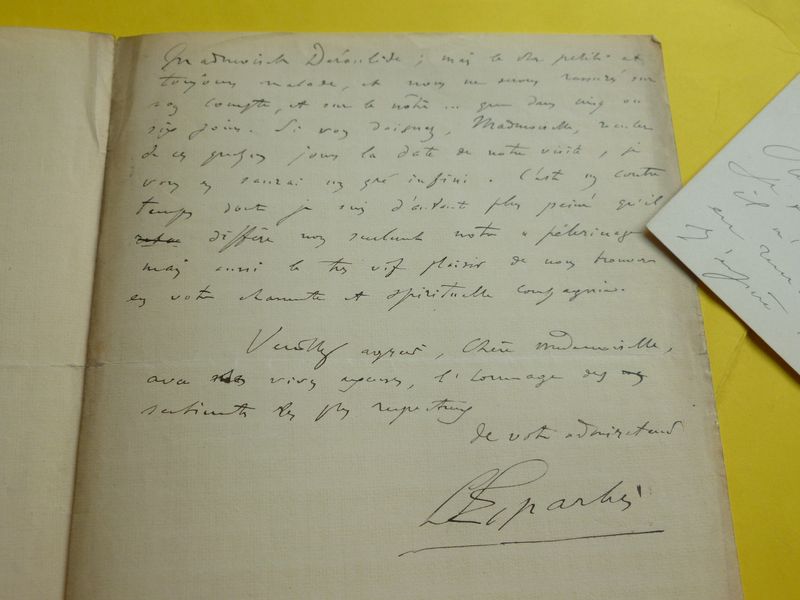 Mademoiselle Déroulède ; mais la chère petite est
toujours malade, et nous ne serons rassurés sur
son compte, et sur le nôtre ... que dans cinq ou
six jours. Si vous daignez, Mademoiselle, reculer
de ces quelques jours la date de notre visite, je
vous en saurai un gré infini. C'est un contre
temps dont je suis d'autant plus peiné qu'il
diffère non seulement notre " pélerinage
mais aussi le très vif plaisir de nous trouver
en votre charmante et spirituelle compagnie.
Veuillez agréer, Chère Mademoiselle,
avec vives excuses, l'hommage des
sentiments les plus respectueux
de votre admirateur
d'Esparbès
il n'